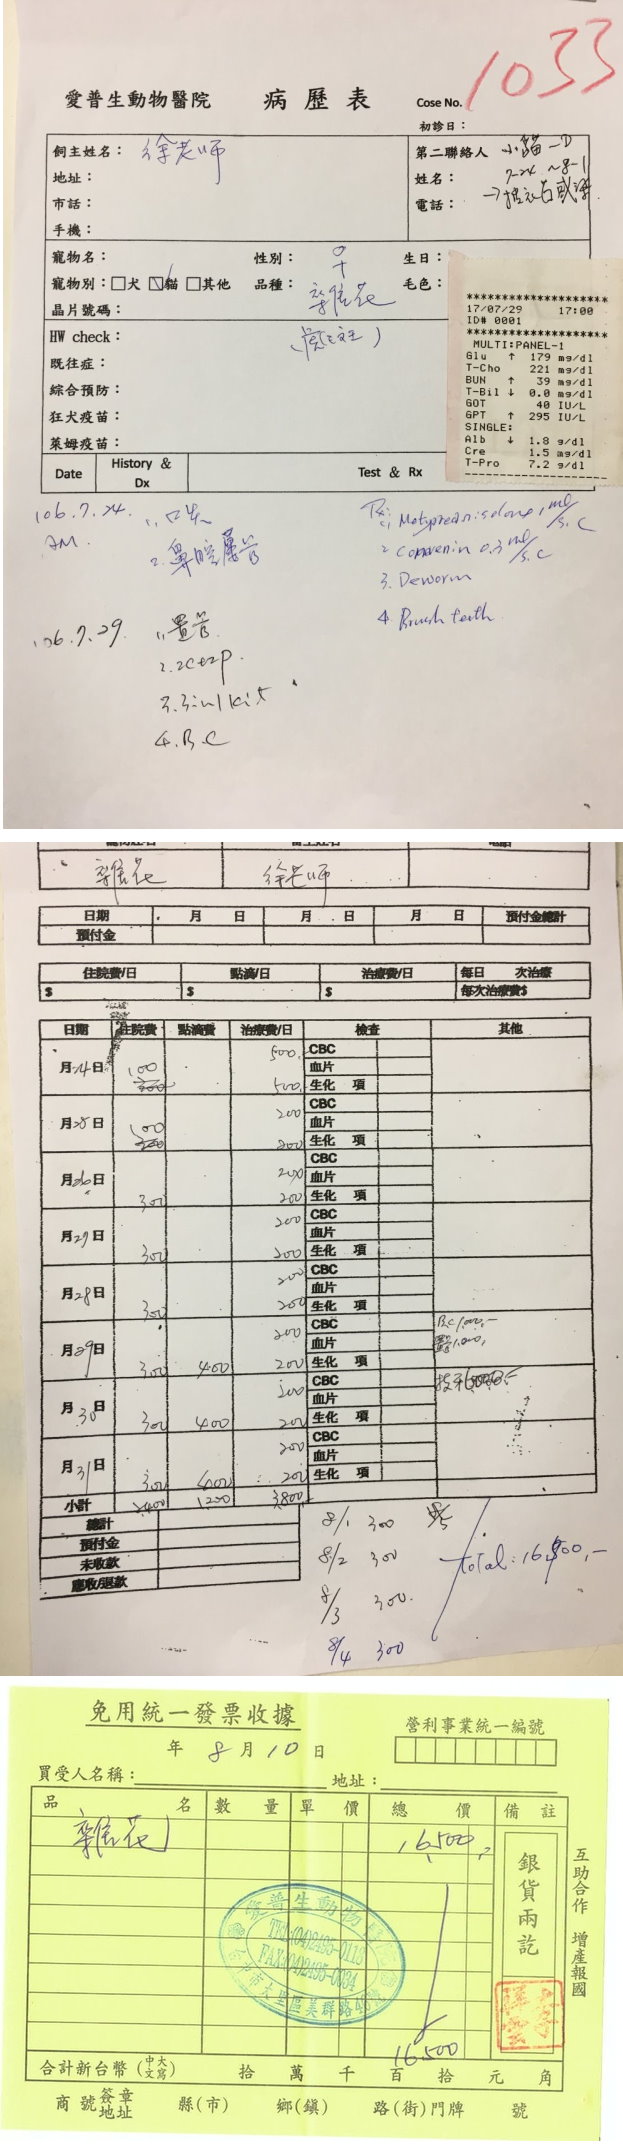 1033
愛普生動物醫院 病歷表 Cose No.
初診日：
飼主姓名： 徐老师
地址：
市話：
手機：
第二聯絡人 小貓
姓名： 7-24 ~8-1
電話：
寵物名： 性別： ♀ 生日：
寵物別：□犬 □貓 □其他 品種： 雜花 毛色：
晶片號碼：
HW check：
既往症：
綜合預防：
狂犬疫苗：
萊姆疫苗：
Date History & Dx Test & Rx
********************
17/07/29 17:00
ID# 0001
********************
MULTI:PANEL-1
Glu ↑ 179 mg/dl
T-Cho 221 mg/dl
BUN ↑ 39 mg/dl
T-Bil ↓ 0.0 mg/dl
GOT 40 IU/L
GPT ↑ 295 IU/L
SINGLE:
Alb ↓ 1.8 g/dl
Cre 1.5 mg/dl
T-Pro 7.2 g/dl
106.7.24. 1. 口炎
AM. 2. 鼻腔
2 Convenin 0.3 ml/s.c
3. Deworm
4. Brush teeth
106.7.29. 1. 置管
3. 3in1 kit
4. B.C
雜花 徐老师
日期 月 日 月 日 月 日 預付金總計
預付金
住院費/日 點滴/日 治療費/日 每日 次治療
$ $ $ 每次治療費$
日期 住院費 點滴費 治療費/日 檢查 其他
月24日 100 500 CBC
血片
500 生化 項
月25日 100 200 CBC
血片
200 生化 項
月26日 200 CBC
血片
300 200 生化 項
月27日 200 CBC
血片
300 200 生化 項
月28日 200 CBC
血片
300 200 生化 項
月29日 200 CBC B.C 1,000,-
血片
300 400 200 生化 項
月30日 CBC
血片
300 400 200 生化 項
月31日 200 CBC
血片
300 400 200 生化 項
小計 2400 1200 3,800
總計
預付金
未收款
應收/退款
8/1 300
8/2 300
8/3 300.
8/4 300
total: 16,500,-
免用統一發票收據
營利事業統一編號
年 8 月 10 日
買受人名稱： 地址：
品名 數量 單價 總價 備註
雜花 16,500
銀貨兩訖
互助合作 增產報國
愛普生動物醫院
TEL:(04)2495-0118
FAX:(04)2495-0834
台中市大里區美群路
16500
合計新台幣（中文大寫） 拾 萬 千 百 拾 元 角
商號簽章地址 縣(市) 鄉(鎮) 路(街)門牌 號